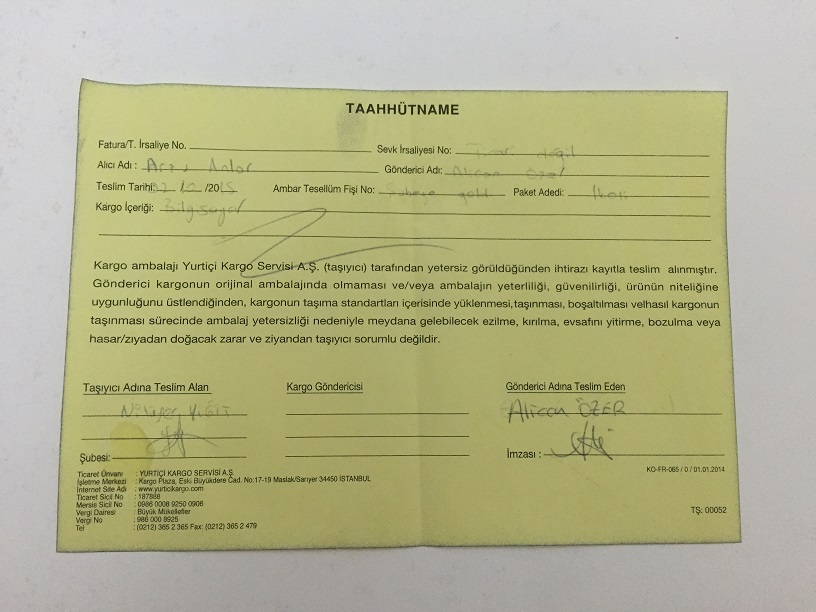 TAAHHÜTNAME
Fatura/T. İrsaliye No. Sevk İrsaliyesi No:
Alıcı Adı: Gönderici Adı: Alican Özer
Teslim Tarihi: /20 Ambar Tesellüm Fişi No: Paket Adedi:
Kargo İçeriği: Bilgisayar
Kargo ambalajı Yurtiçi Kargo Servisi A.Ş. (taşıyıcı) tarafından yetersiz görüldüğünden ihtirazi kayıtla teslim alınmıştır.
Gönderici kargonun orijinal ambalajında olmaması ve/veya ambalajın yeterliliği, güvenilirliği, ürünün niteliğine
uygunluğunu üstlendiğinden, kargonun taşıma standartları içerisinde yüklenmesi,taşınması, boşaltılması velhasıl kargonun
taşınması sürecinde ambalaj yetersizliği nedeniyle meydana gelebilecek ezilme, kırılma, evsafını yitirme, bozulma veya
hasar/zıyadan doğacak zarar ve ziyandan taşıyıcı sorumlu değildir.
Taşıyıcı Adına Teslim Alan Kargo Göndericisi Gönderici Adına Teslim Eden
Alican ÖZER
Şubesi: İmzası :
Ticaret Ünvanı : YURTİÇİ KARGO SERVİSİ A.Ş.
İşletme Merkezi : Kargo Plaza, Eski Büyükdere Cad. No:17-19 Maslak/Sarıyer 34450 İSTANBUL
İnternet Site Adı : www.yurticikargo.com
Ticaret Sicil No : 187388
Mersis Sicil No : 0986 0008 9250 0906
Vergi Dairesi : Büyük Mükellefler
Vergi No : 986 000 8925
Tel : (0212) 365 2 365 Fax: (0212) 365 2 479
KO-FR-065 / 0 / 01.01.2014
TŞ. 00052